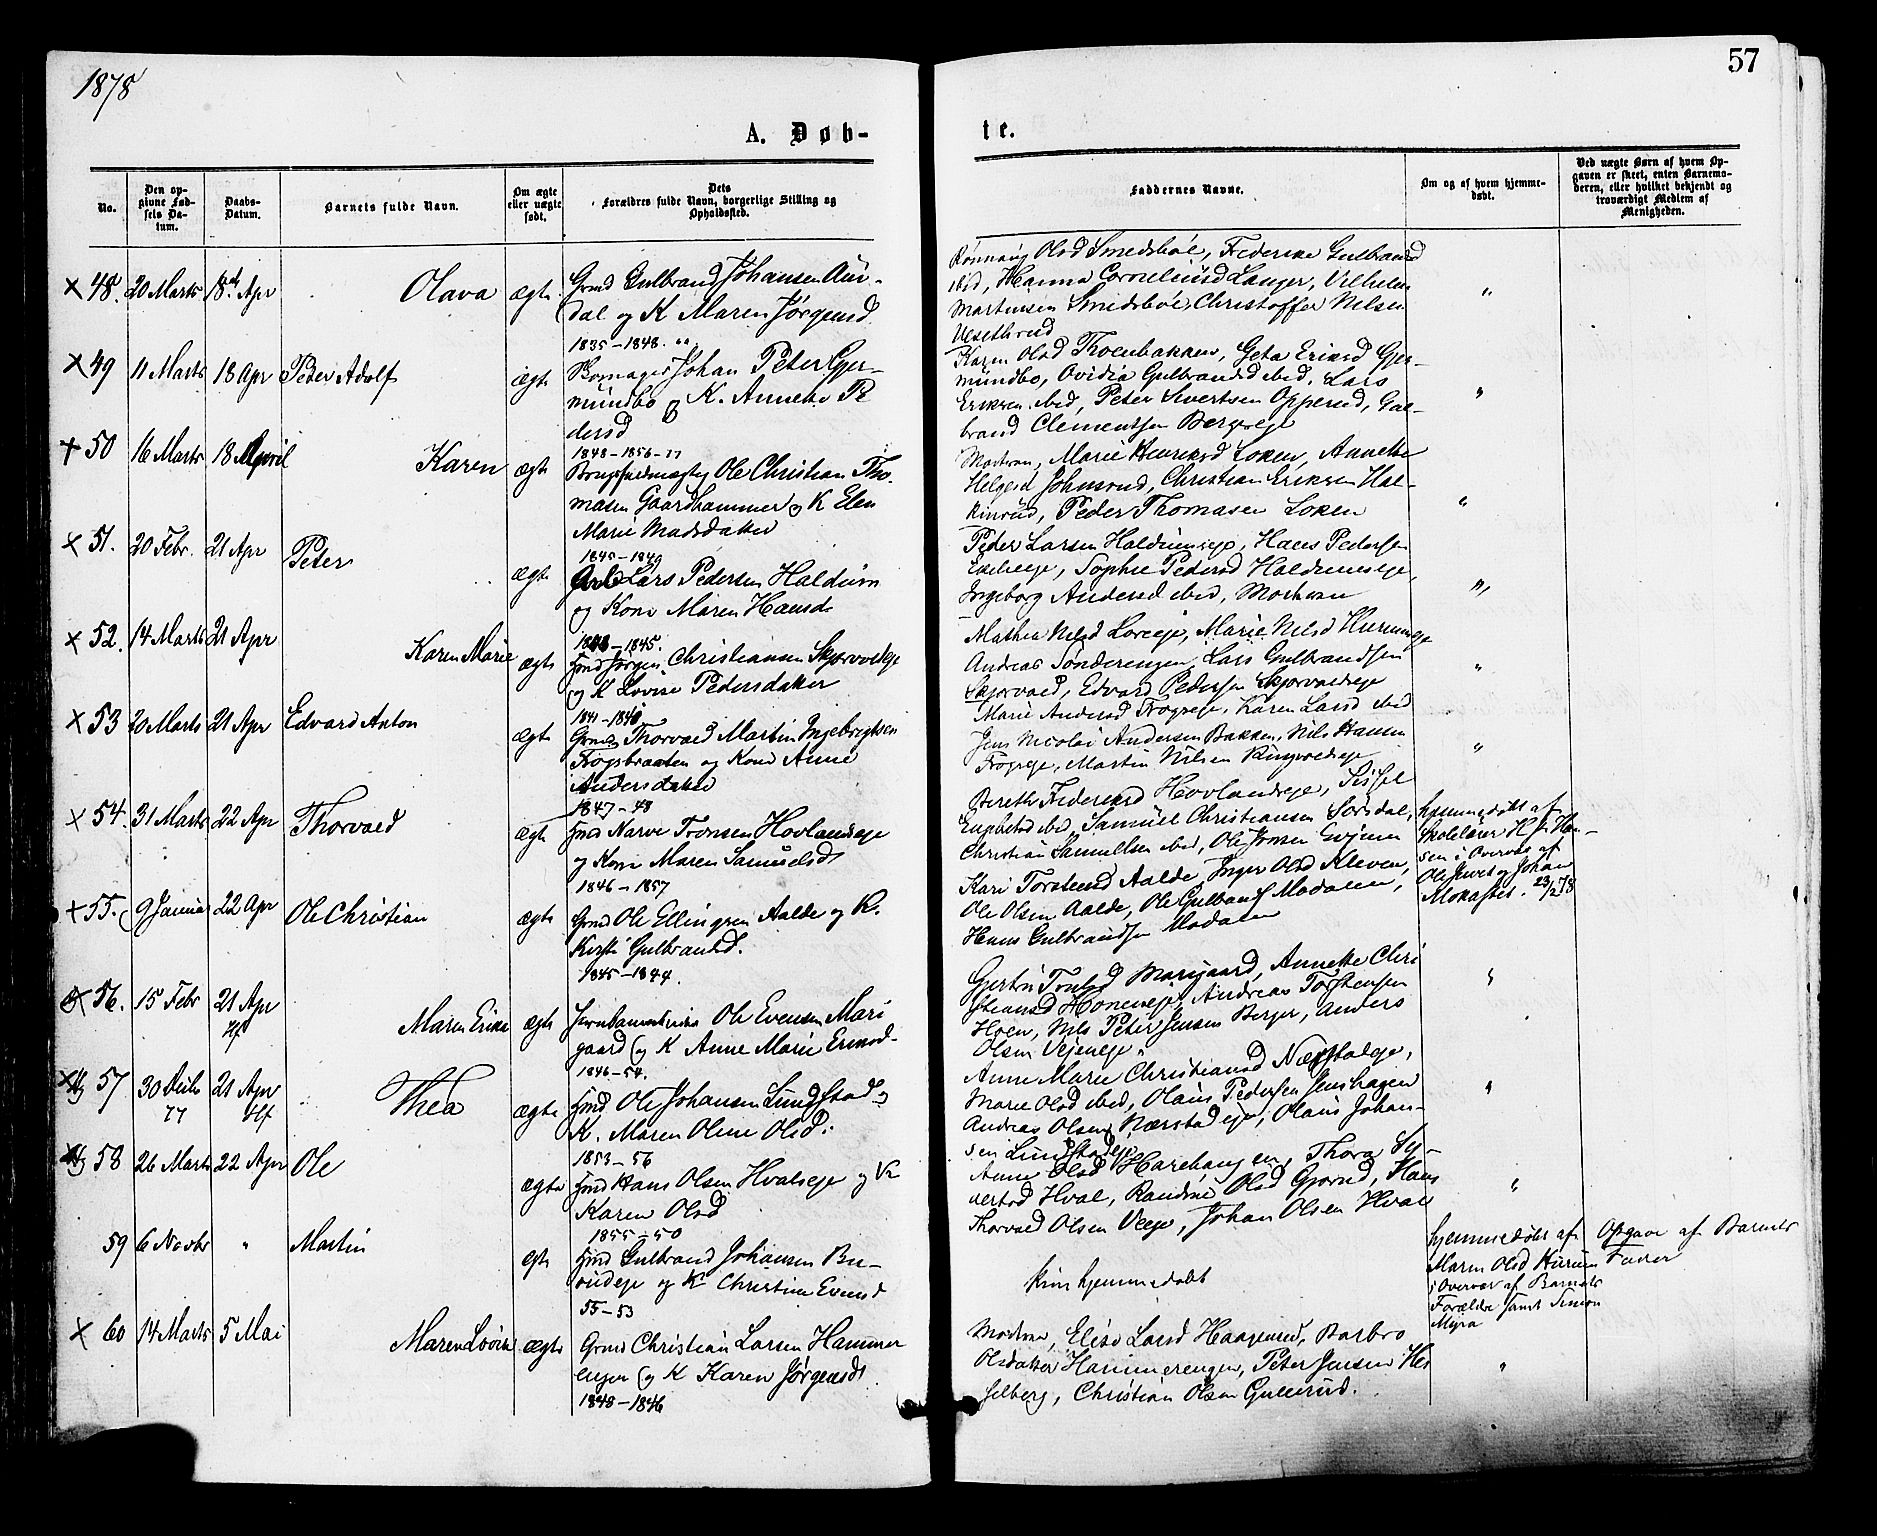 1878
57
A. Døb-
te.
No.
Den op-
givne Fød-
sels Da-
tum.
Daabs-
Datum.
Barnets fulde Navn.
Om ægte
eller uægte
født.
Dets
Forældres fulde Navn, borgerlige Stilling og
Opholdssted.
Faddernes Navne.
Om og af hvem hjemme-
døbt.
Ved uægte Børn af hvem Op-
gaven er skeet, enten Barnemo-
deren, eller hvilket bekjendt og
troværdigt Medlem af
Menigheden.
48. 20 Marts 18 Apr Olava ægte Grmd Gulbrand Johansen Aur-
dal og K Maren Jørgensd
1835-1848
Olsd Smedsböl, Frederike Gulbrandsd
ibid, Hanna Corneliusd Langer, Vilhelm
Martinsen Smedsböl, Christoffer Nilsen
49 11 Marts 18 Apr Peder Adolf ægte Skomager Johan Peter Gjer-
mundbo og K. Annette Pe
dersd
1848-1856
Karen Olsd Thoenbakken, Geta Eriksd Gjer-
mundbo, Ovidia Gulbrandsd ibid, Lars
Eriksen ibid, Peter Sivertsen Opperud, Gul-
brand Clementsen Bergereje
50 16 Marts 18 April Karen ægte Ole Christian Tho-
masen Gaardhammer og K Elen
Marie Madsdatter
1845-1849
Modren, Marie Henriksd Loken, Annette
Helgesd Johnsrud, Christian Eriksen Hal-
kinrud, Peder Thomasen Loken
51. 20 Febr. 21 Apr Peter ægte Lars Pedersen Haldum
og Kone Maren Hansd
1845.
Peder Larsen Haldumseje, Hans Pedersen
Sophie Pedersd Haldumseje,
Ingeborg Andersd ibid, Modren
52. 14 Marts 21 Apr Karen Marie ægte Hmd Jørgen Christiansen Skjørvoldeje
og K Lovise Pedersdatter
1841-1840
Mathea Nilsd Loreje, Marie Nilsd Hurumeje
Andreas Sønderengen, Lars Gulbrandsen
Skjørvold, Edvard Pedersen Skjørvoldeje
53 20 Marts 21 Apr Edvard Anton ægte Grmd Thorvald Martin Ingebrigtsen
Frogsbraaten og Kone Anne
Andersdatter
1847-48
Marie Andersd Frogseje, Karen Larsd ibid
Jens Nicolai Andersen Bakken, Nils Hansen
Frogseje, Martin Nilsen
54. 31 Marts 22 Apr Thorvald ægte Hmd Narve Tronsen Hovlandseje
og Kone Maren Samuelsdt
1846-1857
Berethe Frederiksd Hovlandseje, Sissel
Engebretsd ibid, Samuel Christiansen Sorsdal,
Christian Samuelsen ibid, Ole Jonsen
hjemmedøbt af
Skolelærer H. Han-
sen i Overvær af
Ole og Johan
55. 9 Januar 22 Apr Ole Christian ægte Grmd Ole Ellingsen Aalde og K.
Kirsti Gulbrandsd.
1845-1844.
Kari Torstensd Aalde, Inger Olsd Kleven,
Ole Olsen Aalde, Ole Gulbrands Modalen,
Hans Gulbrandsen Modalen
56. 15 Febr 21 Apr Maren Erika ægte Ole Evensen Mari
gaard og K Anne Marie
1846-54.
Marigaard, Annette Chri
stiansd Honeneje, Andreas Torstensen
Hoen, Nils Peter Jensen Berger, Anders
Olsen Vejeneje
57 30 77 21 Apr Thea ægte Hmd Ole Johansen Lundstad og
K. Maren Oline Olsd.
1853-56
Anne Marie Christiansd
Marie Olsd ibid, Olaus Pedersen Jenshagen
Andreas Olsen Nærstadeje, Olaus Johan-
sen Lundstadeje
58 26 Marts 22 Apr Ole ægte Hmd Hans Olsen Hvalseje og K
Karen Olsd
1855-50
Anne Olsd Harehaugen, Thora Sy-
vertsd Hval, Randine Olsd Gjørud, Hans
Thorvald Olsen Veeje, Johan Olsen Hval
59 6 Novbr " Martin egte Hmd Gulbrand Johansen Bu-
rudeje og K Christine Evensd
55-53
kun hjemmedøbt
hjemmedøbt af
Maren Olsd Hurum
i Overvær af Barnets
Forældre samt Simon
Myra
Opgave af Barnets
Fader
60 14 Marts 5 Mai Maren Lovise ægte Grmd Christian Larsen Hammer
engen og K Karen Jørgensdt
1848-1846
Modren, Elise Larsd Haagensd, Barbro
Olsdatter Hammerengen, Peter Jensen Hes
selberg, Christian Olsen Gullerud.